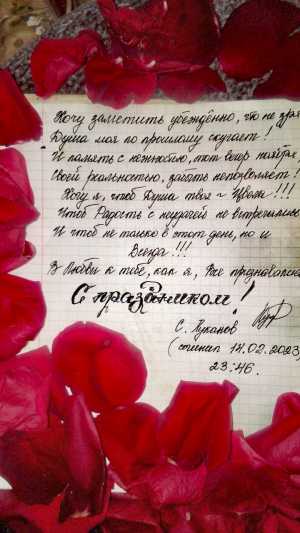 Хочу заметить убеждённо, что не зря
Душа моя по прошлому скучает!
И память с нежностью, тот
Своей реальностью, забыть не позволяет!
Хочу я, чтоб Душа твоя - Цвела!!!
Чтоб Радость с неудачей не встречались
И чтоб не только в этот день, но и
Всегда!!!
В Любви к тебе, как я, Все
С праздником!
С. Луканов
(сочинил 14.02.2023
23:46.